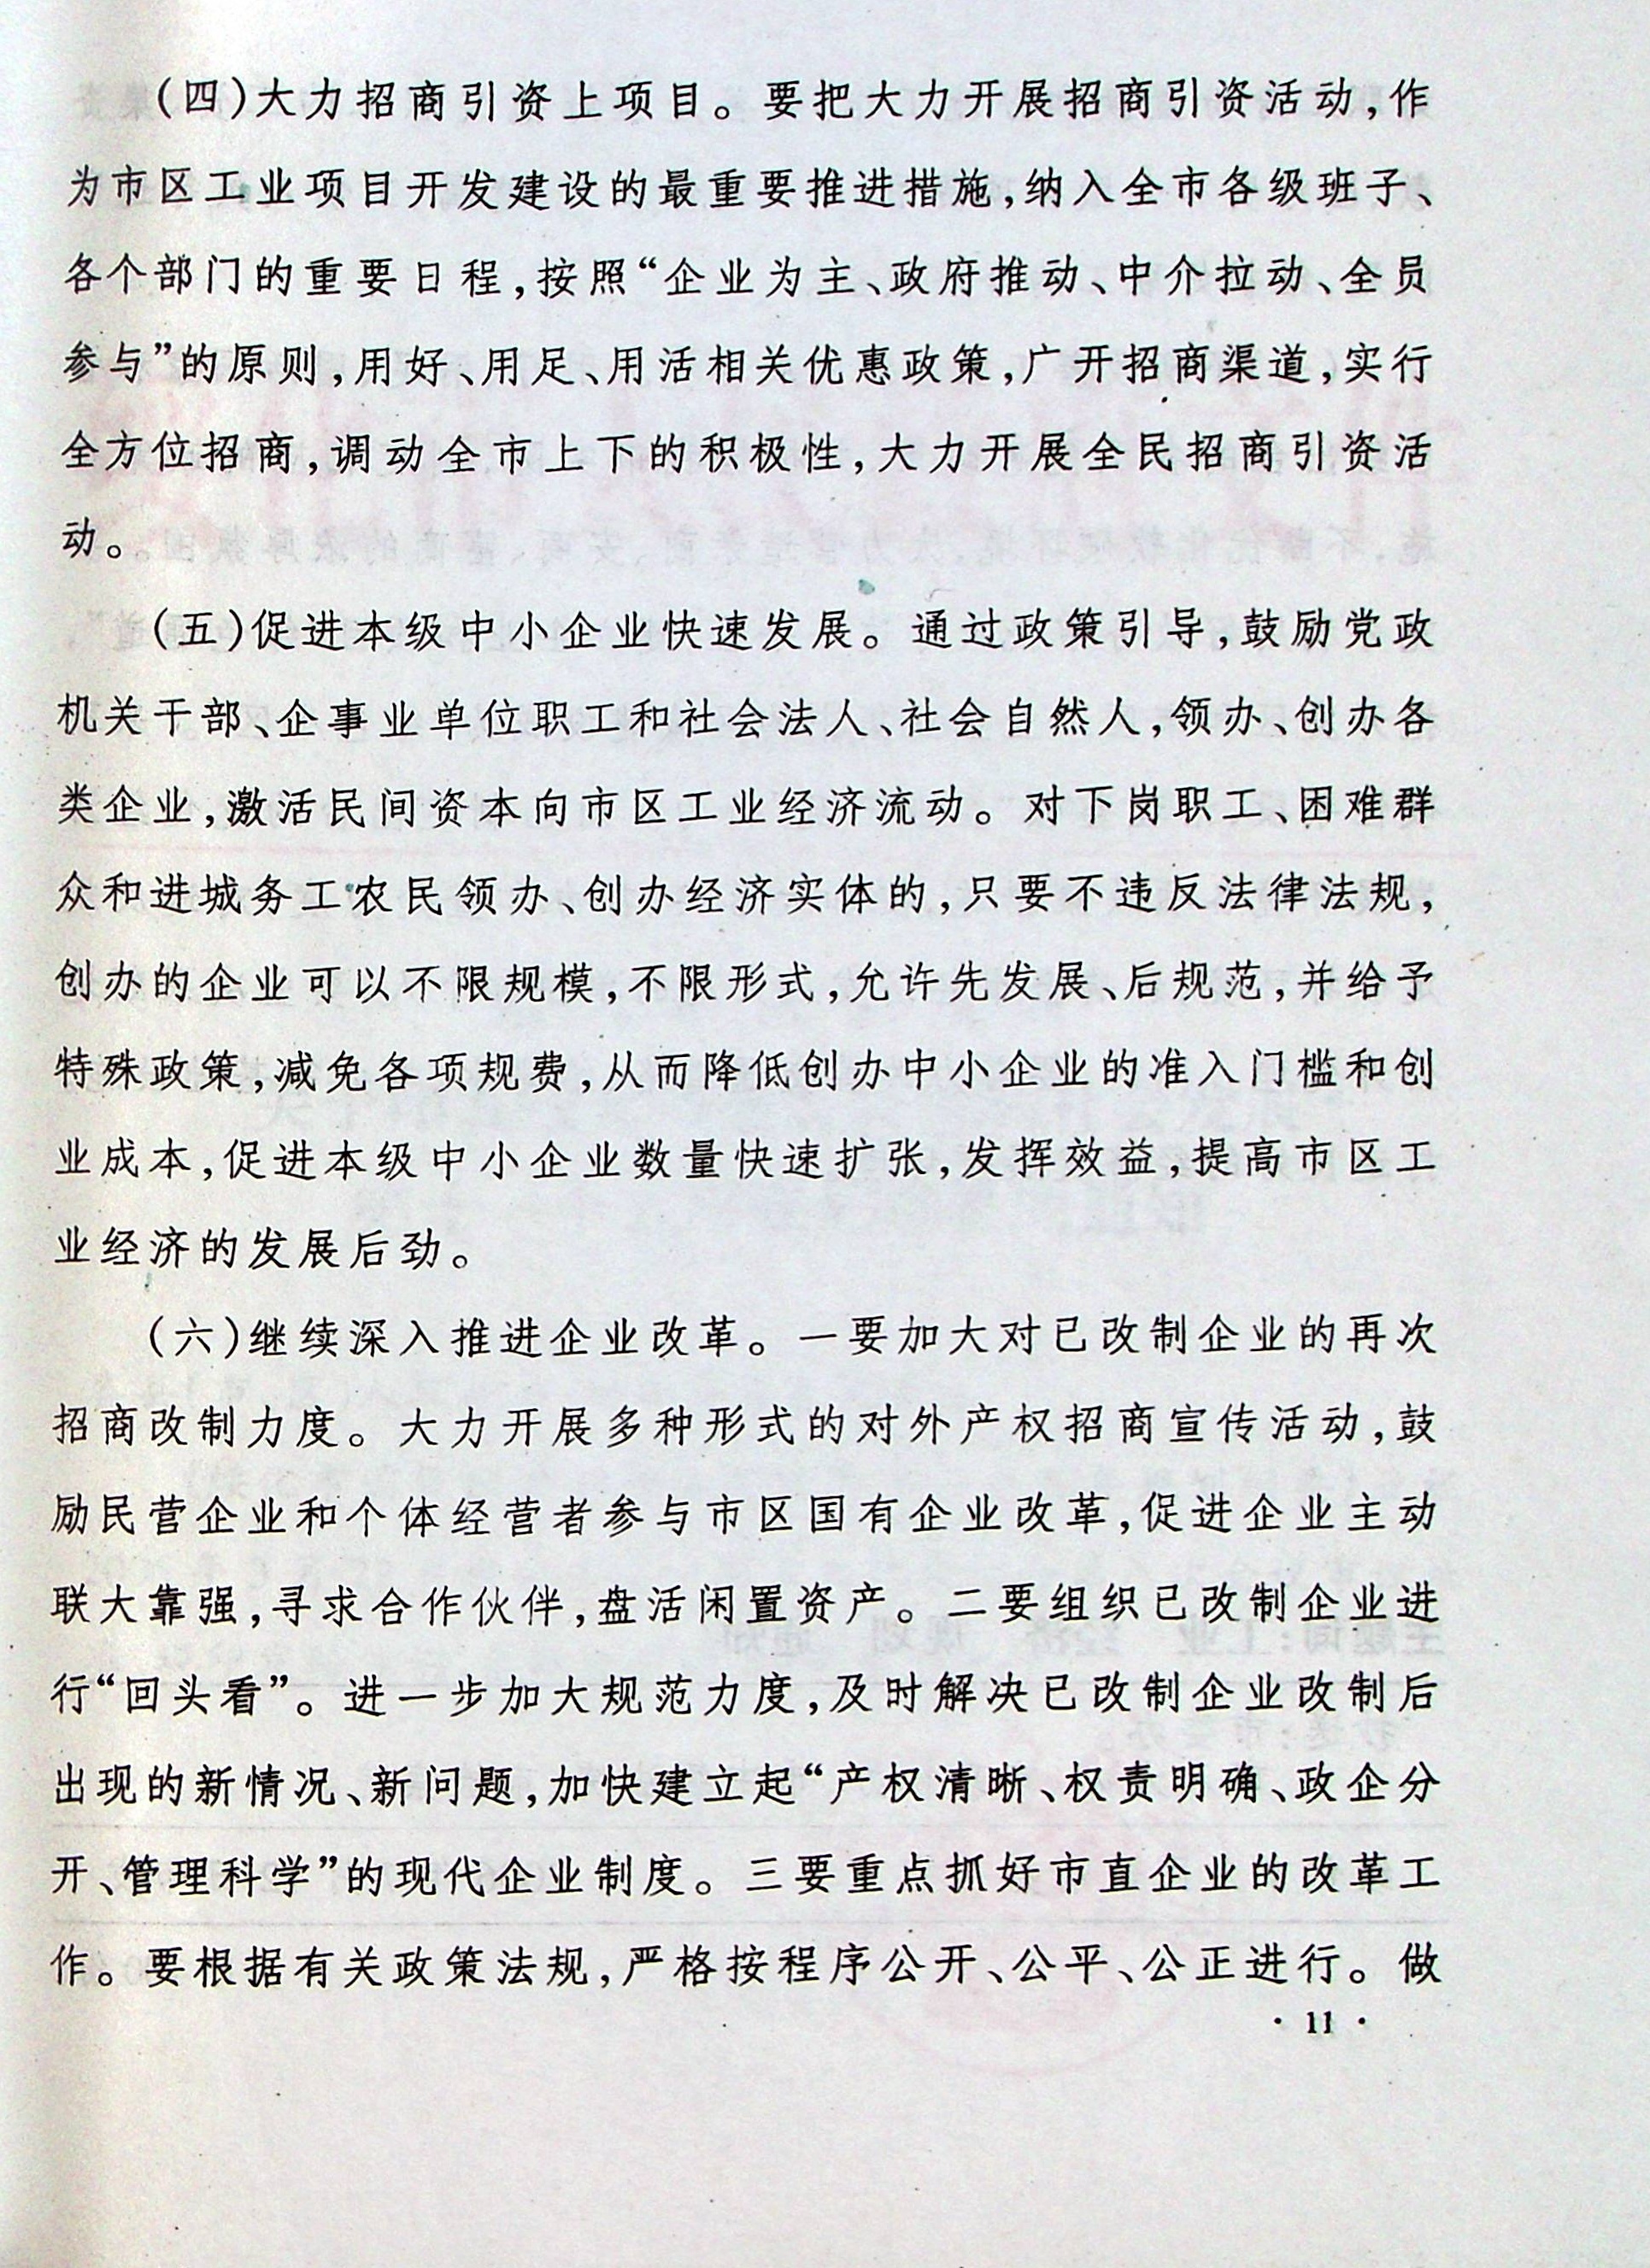 (四)大力招商引资上项目。要把大力开展招商引资活动,作
为市区工业项目开发建设的最重要推进措施,纳入全市各级班子、
各个部门的重要日程,按照“企业为主、政府推动、中介拉动、全员
参与”的原则,用好、用足、用活相关优惠政策,广开招商渠道,实行
全方位招商,调动全市上下的积极性,大力开展全民招商引资活
动。
(五)促进本级中小企业快速发展。通过政策引导,鼓励党政
机关干部、企事业单位职工和社会法人、社会自然人,领办、创办各
类企业,激活民间资本向市区工业经济流动。对下岗职工、困难群
众和进城务工农民领办、创办经济实体的,只要不违反法律法规,
创办的企业可以不限规模,不限形式,允许先发展、后规范,并给予
特殊政策,减免各项规费,从而降低创办中小企业的准入门槛和创
业成本,促进本级中小企业数量快速扩张,发挥效益,提高市区工
业经济的发展后劲。
(六)继续深入推进企业改革。一要加大对已改制企业的再次
招商改制力度。大力开展多种形式的对外产权招商宣传活动,鼓
励民营企业和个体经营者参与市区国有企业改革,促进企业主动
联大靠强,寻求合作伙伴,盘活闲置资产。二要组织已改制企业进
行“回头看”。进一步加大规范力度,及时解决已改制企业改制后
出现的新情况、新问题,加快建立起“产权清晰、权责明确、政企分
开、管理科学”的现代企业制度。三要重点抓好市直企业的改革工
作。要根据有关政策法规,严格按程序公开、公平、公正进行。做
· 11 ·